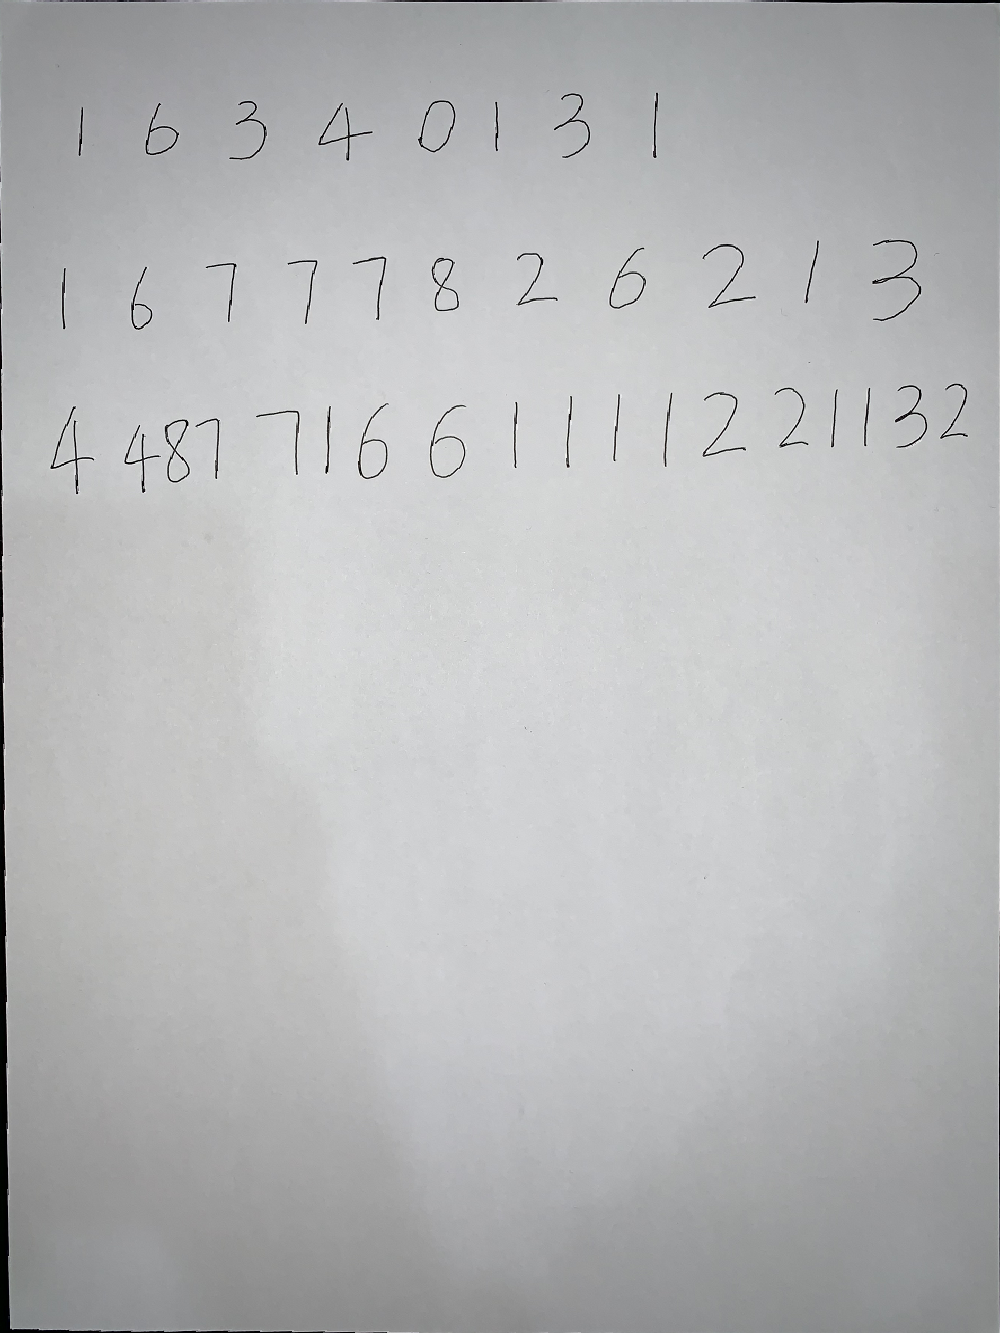 1 6 3 4 0 1 3 1
1 6 7 7 7 8 2 6 2 1 3
4 487 716 6 1 1 1 1 2 2 1 1 3 2